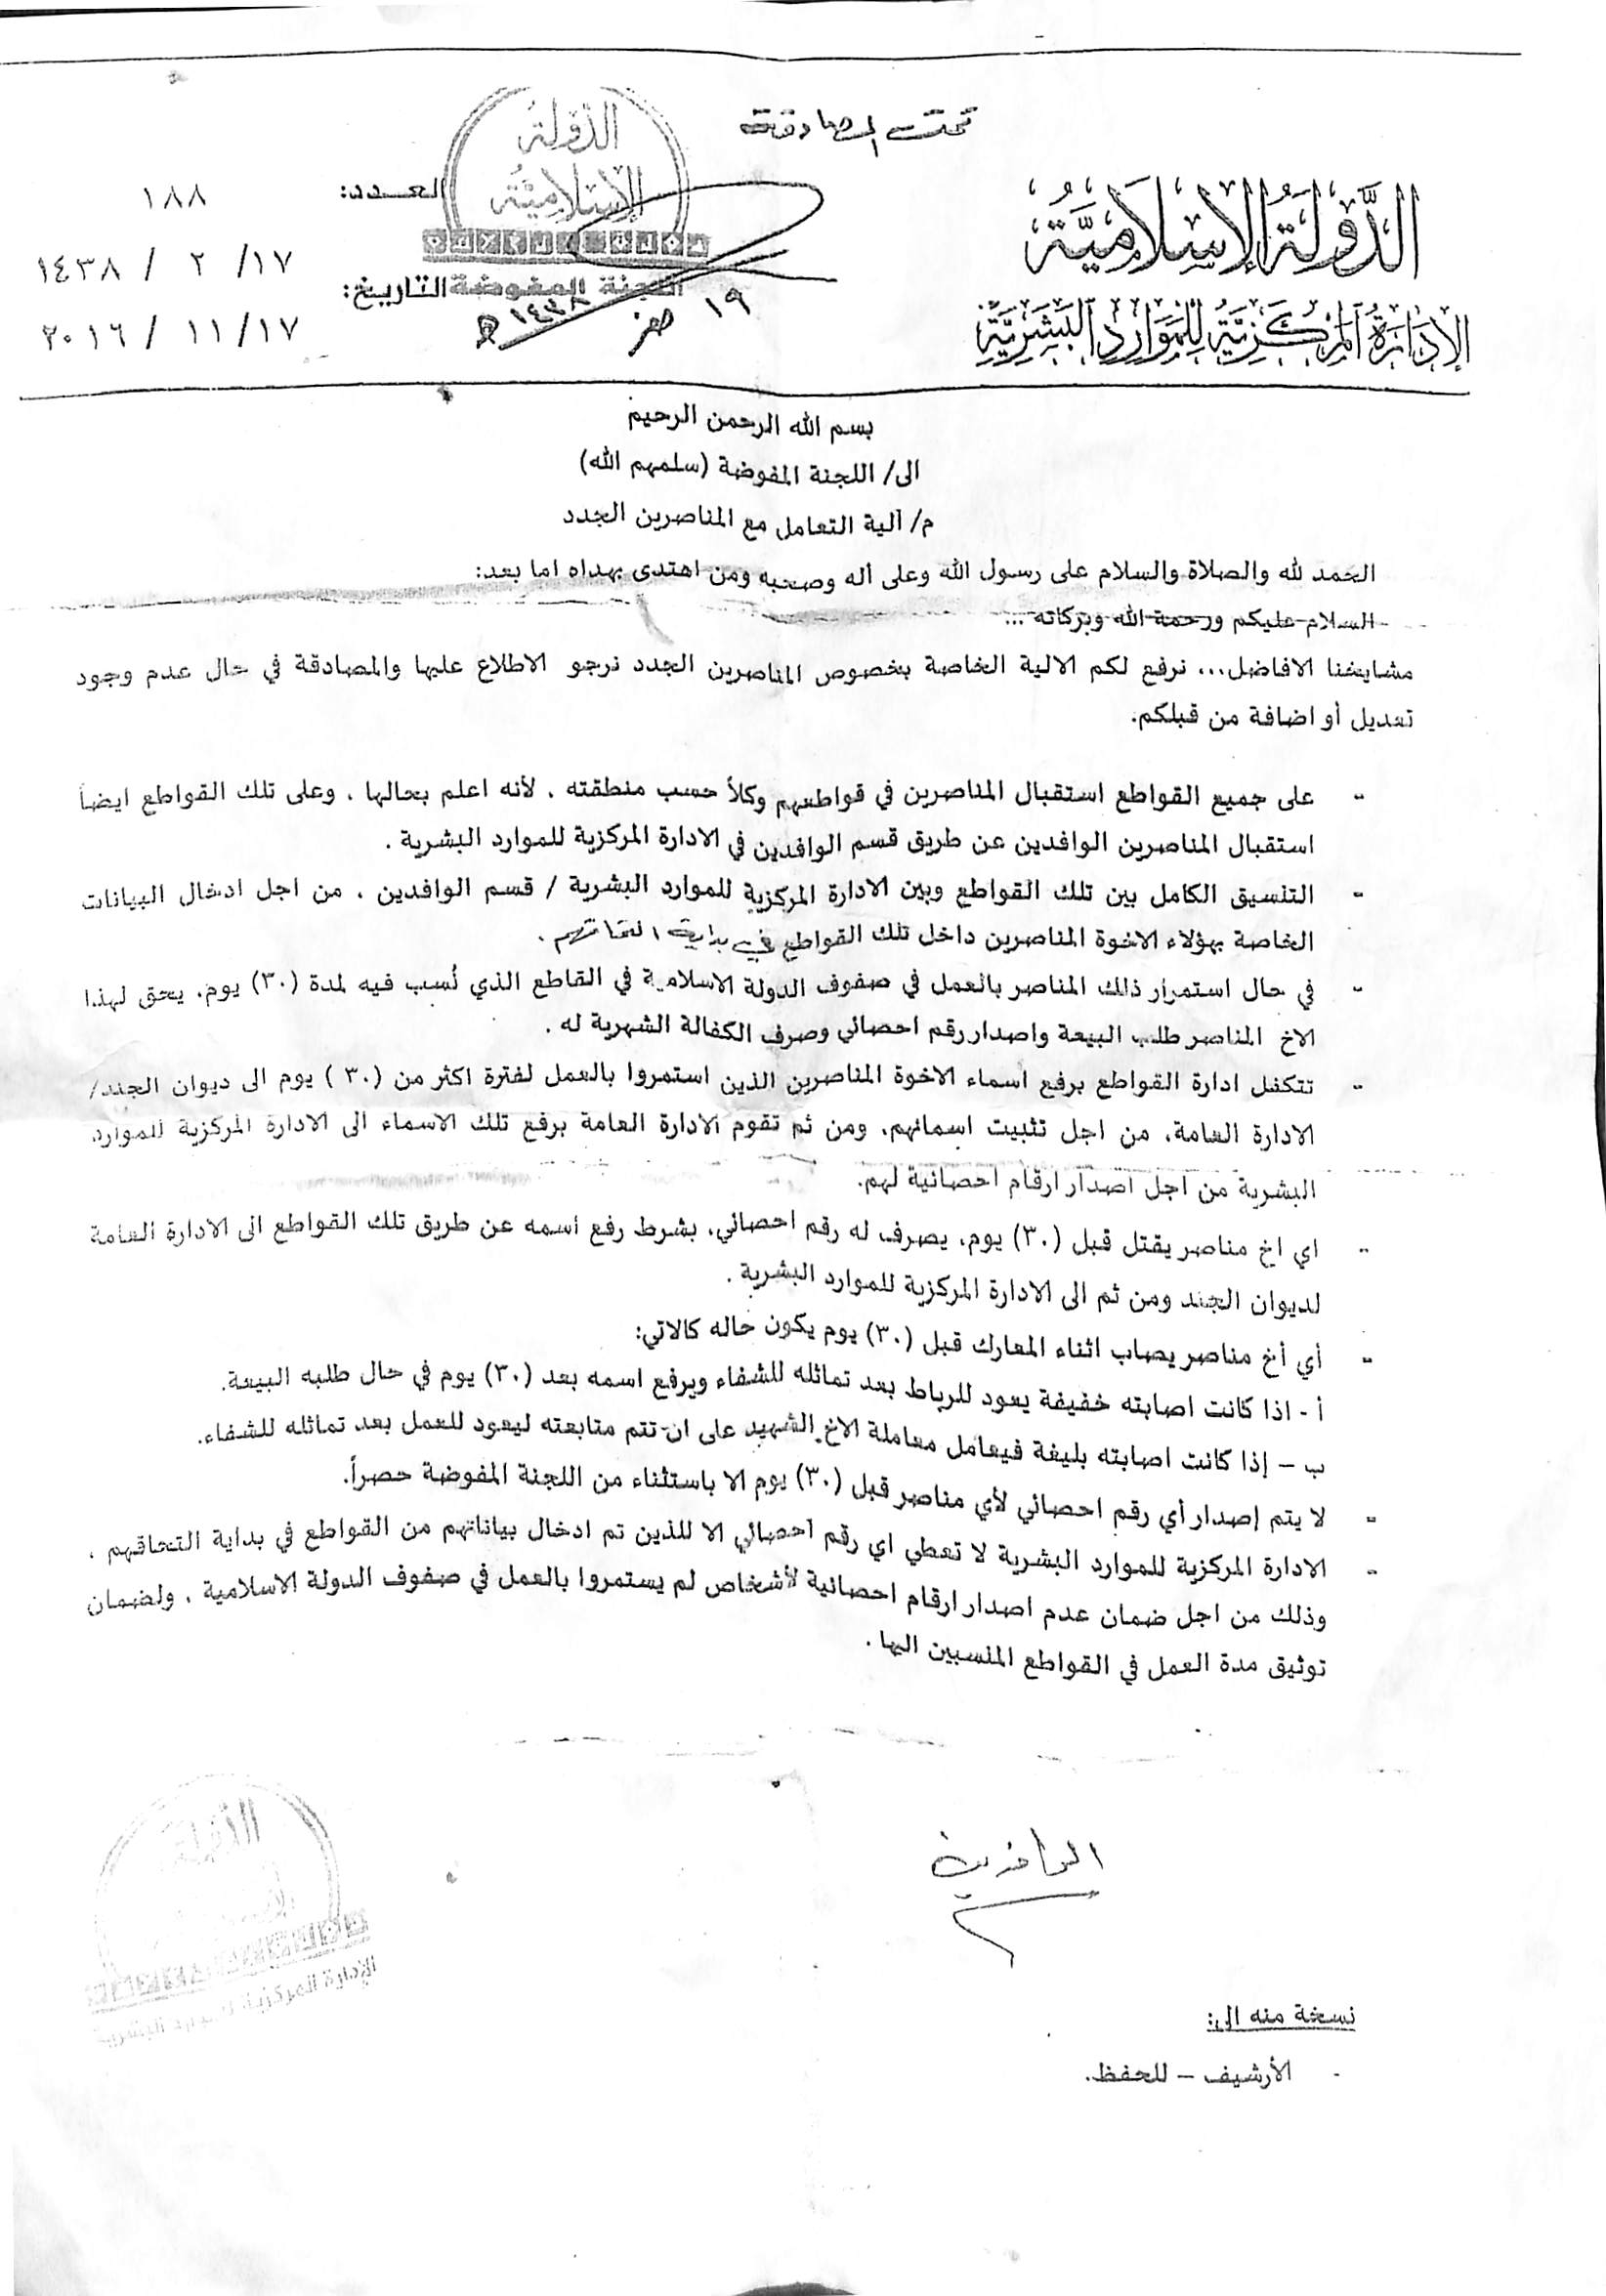 تمت المصادقة
الدولة
الإسلامية
اللجنة المفوضة
١٩ صفر ١٤٣٨ هـ
الدَّوْلَةُ الإِسْلَامِيَّةُ
الإِدَارَةُ المَرْكَزِيَّةُ لِلمَوَارِدِ البَشَرِيَّةِ
العـــدد: ١٨٨
التاريخ: ١٧/ ٢ / ١٤٣٨
١٧/ ١١ / ٢٠١٦
بسم الله الرحمن الرحيم
الى/ اللجنة المفوضة (سلمهم الله)
م/ آلية التعامل مع المناصرين الجدد
الحمد لله والصلاة والسلام على رسول الله وعلى أله وصحبه ومن اهتدى بهداه اما بعد:
السلام عليكم ورحمة الله وبركاته ...
مشايخنا الافاضل... نرفع لكم الالية الخاصة بخصوص المناصرين الجدد نرجو الاطلاع عليها والمصادقة في حال عدم وجود
تعديل أو اضافة من قبلكم.
- على جميع القواطع استقبال المناصرين في قواطعهم وكلاً حسب منطقته ، لأنه اعلم بحالها ، وعلى تلك القواطع ايضاً
استقبال المناصرين الوافدين عن طريق قسم الوافدين في الادارة المركزية للموارد البشرية .
- التنسيق الكامل بين تلك القواطع وبين الادارة المركزية للموارد البشرية / قسم الوافدين ، من اجل ادخال البيانات
الخاصة بهؤلاء الاخوة المناصرين داخل تلك القواطع في بداية التحاقهم .
- في حال استمرار ذلك المناصر بالعمل في صفوف الدولة الاسلامية في القاطع الذي نُسب فيه لمدة (٣٠) يوم، يحق لهذا
الاخ المناصر طلب البيعة واصدار رقم احصائي وصرف الكفالة الشهرية له .
- تتكفل ادارة القواطع برفع اسماء الاخوة المناصرين الذين استمروا بالعمل لفترة اكثر من (٣٠ ) يوم الى ديوان الجند/
الادارة العامة، من اجل تثبيت اسمائهم، ومن ثم تقوم الادارة العامة برفع تلك الاسماء الى الادارة المركزية للموارد
البشرية من اجل اصدار ارقام احصائية لهم.
- اي اخ مناصر يقتل قبل (٣٠) يوم، يصرف له رقم احصائي، بشرط رفع اسمه عن طريق تلك القواطع الى الادارة العامة
لديوان الجند ومن ثم الى الادارة المركزية للموارد البشرية .
- أي أخ مناصر يصاب اثناء المعارك قبل (٣٠) يوم يكون حاله كالاتي:
أ - اذا كانت اصابته خفيفة يعود للرباط بعد تماثله للشفاء ويرفع اسمه بعد (٣٠) يوم في حال طلبه البيعة.
ب – إذا كانت اصابته بليغة فيعامل معاملة الاخ الشهيد على ان تتم متابعته ليعود للعمل بعد تماثله للشفاء.
- لا يتم إصدار أي رقم احصائي لأي مناصر قبل (٣٠) يوم الا باستثناء من اللجنة المفوضة حصراً.
- الادارة المركزية للموارد البشرية لا تعطي اي رقم احصائي الا للذين تم ادخال بياناتهم من القواطع في بداية التحاقهم ،
وذلك من اجل ضمان عدم اصدار ارقام احصائية لأشخاص لم يستمروا بالعمل في صفوف الدولة الاسلامية ، ولضمان
توثيق مدة العمل في القواطع المنسبين اليها .
الوافدين
الإدارة المركزية للموارد البشرية
نسخة منه الى:
- الأرشيف – للحفظ.